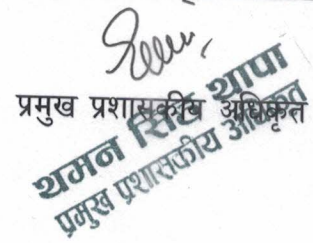 प्रमुख प्रशासकीय अधिकृत
थमन सिंह थापा
प्रमुख प्रशासकीय अधिकृत